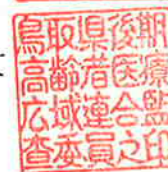 鳥取県後期
高齢者医療
広域連合監
査委員之印